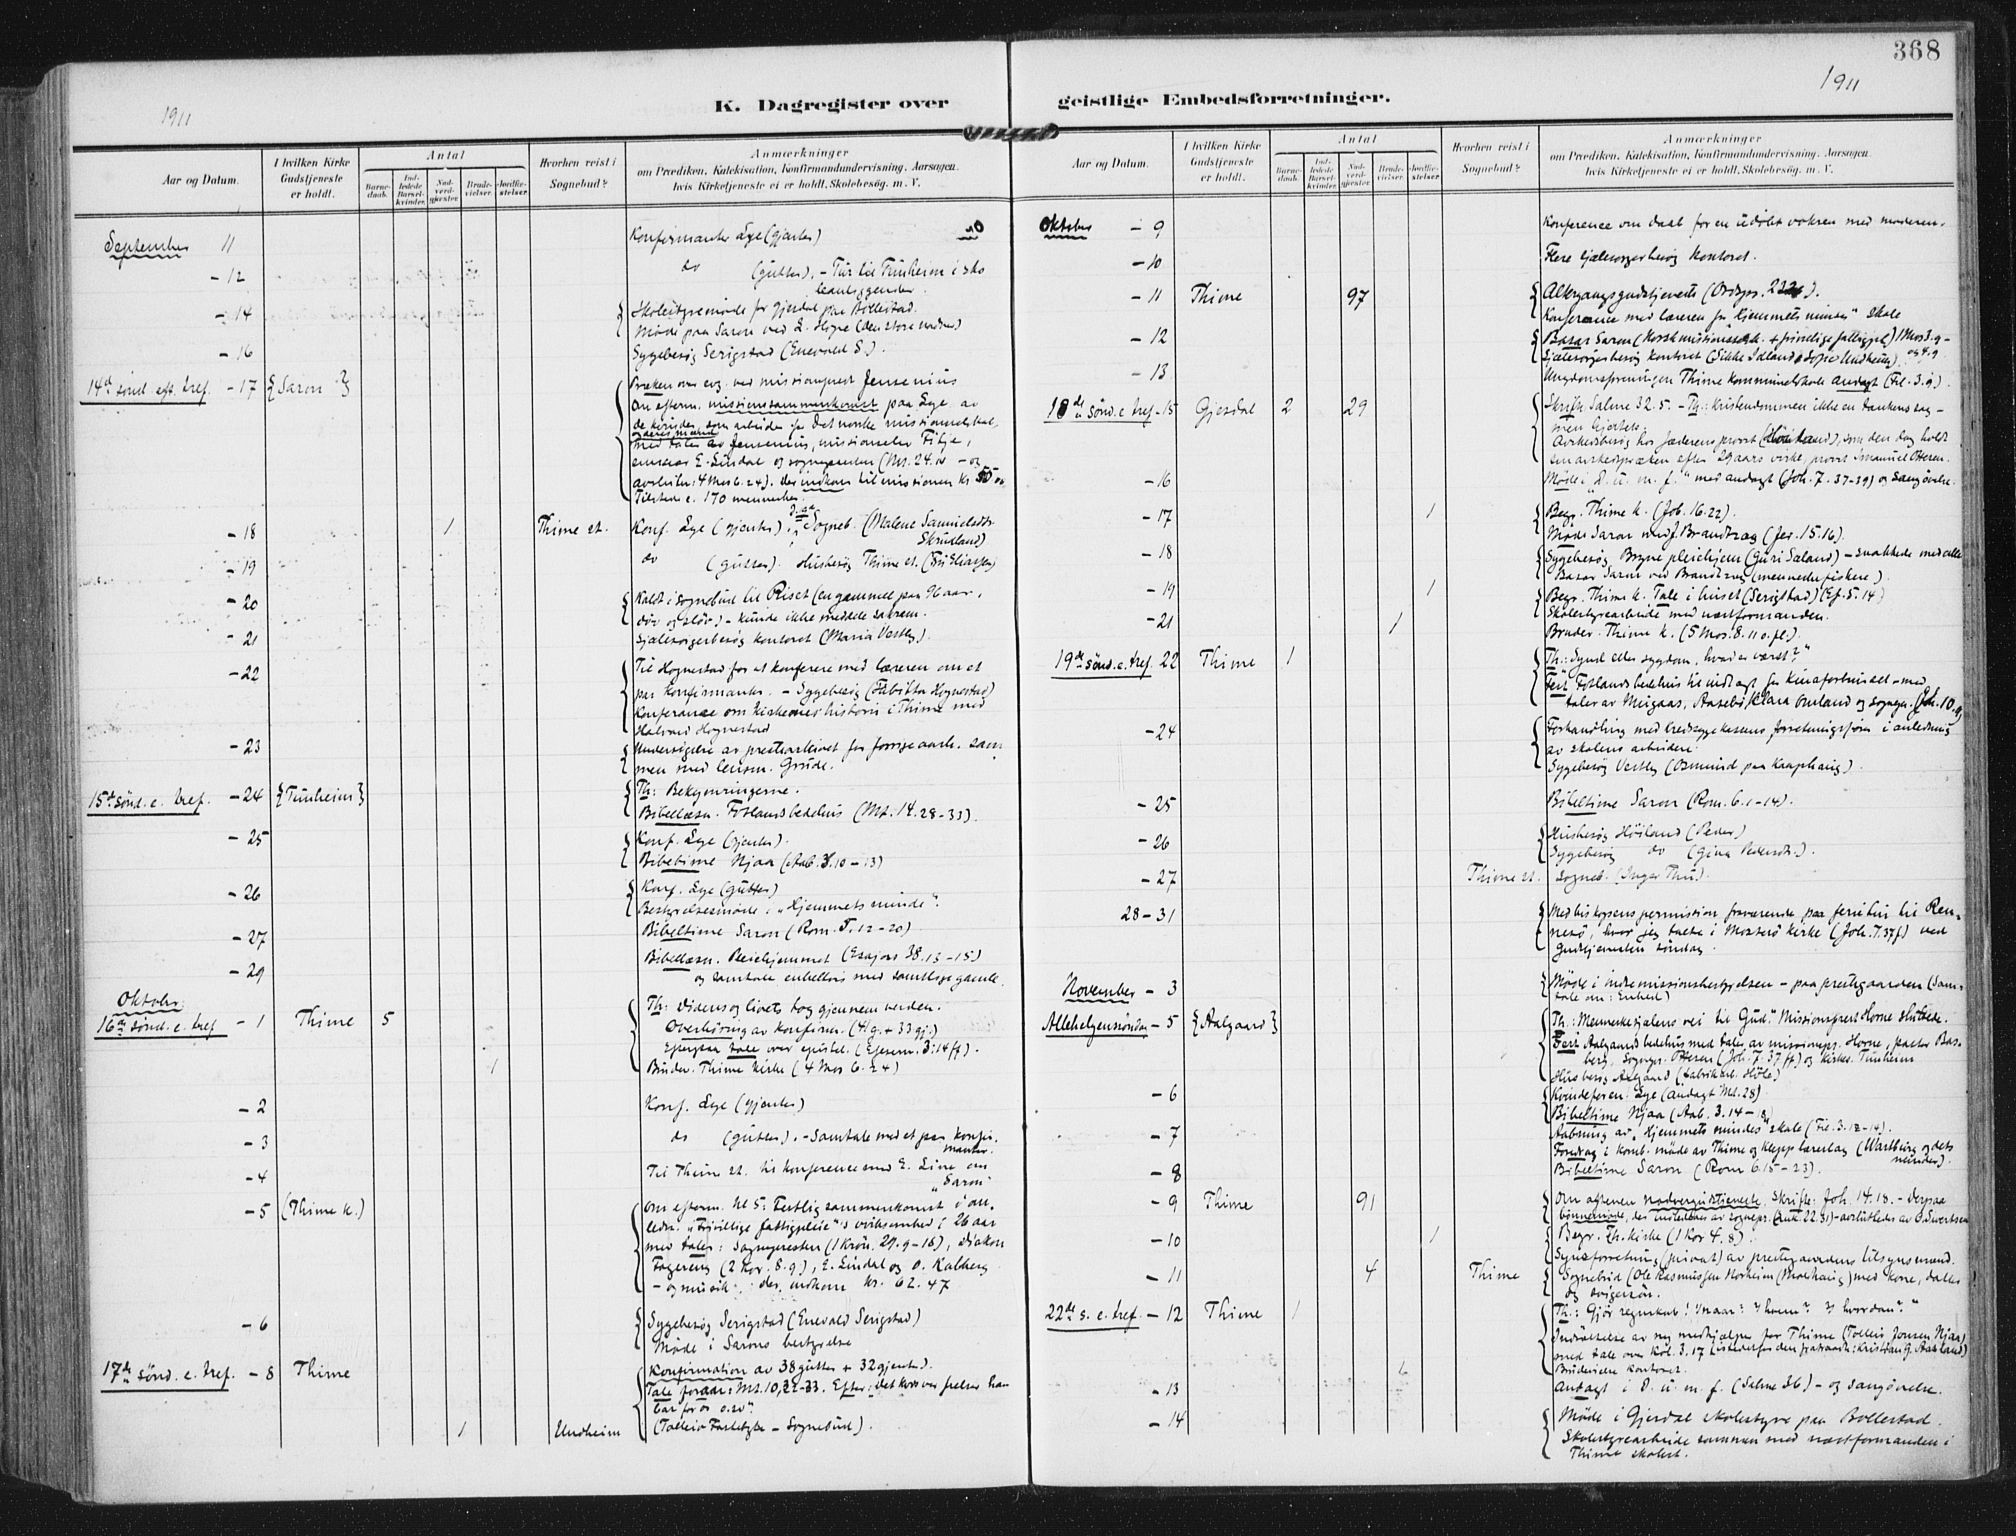 368
1911
1911
K. Dagregister over geistlige Embedsforretninger.
Aar og Datum.
I hvilken Kirke Gudstjeneste er holdt.
Antal
Barnedaab.
Indledede Barselkvinder.
Nadverdgjester
Brudevielser.
Jordfæstelser.
Hvorhen reist i Sognebud?
Anmærkninger
om Prædiken, Katekisation, Konfirmandundervisning, Aarsagen, hvis Kirketjeneste ei er holdt, Skolebesøg, m. V.
September 11 Konfirmanter Lye (gjenter)
- 12 do (gutter). - Tur til Tunheim i sko
- 14 Skolestyremøde for Gjesdal paa Bollestad.
Møde paa Saron ved
- 16 Sygebesøg Serigstad (Enevald S.).
14de sønd. eft. tref. - 17 {Saron} Præken over evg. ved missionsprest Jensenius
Om efterm. missionssammenkomst paa Lye av
de kvinder, som arbeider for det norske missionsselskab,
med taler av Jensenius, missionselev Fitje,
E. Lindal og sognepresten (Mt. 24.14 - og
4 Mos 6.24). Der indkom til missionen kr 50
Tilstede c. 170 mennesker.
- 18 1 Thime st. Konf. Lye (gjenter). Sogneb. (Malene Samuelsdtr.
Skrudland)
- 19 do (gutter). Husbesøg Thime st.
- 20 Kaldt i sognebud til Riset (en gammel paa 96 aar,
døv og sløv) - kunde ikke meddele sakram.
- 21 Sjælesørgerbesøg kontoret (Maria Vestly).
- 22 Til Hognestad for at konferere med læreren om et
par konfirmanter. - Sygebesøg (Hognestad)
Konferanse om kirkernes historie i Thime med
Halvard Hognestad
- 23 Undersøgelse av prestearkivet for forrige aarh. sam
men med lensm. Grude.
15de sønd. e. tref. - 24 {Tunheim} Th: Bekymringerne.
Bibellæsn. Fotlands bedehus (Mt. 14.28-33).
- 25 Konf. Lye (gjenter).
Bibeltime Njaa (Aab. 3.10-13)
- 26 Konf. Lye (gutter)
Bestyrelsesmøde i „Hjemmets minde".
- 27 Bibeltime Saron (Rom. 5.12-20)
- 29 Bibellæsn. Pleiehjemmet (Esajas 38.13-15)
og samtale enkeltvis med samtlige gamle.
Oktober
16de sønd. e. tref - 1 Thime 5 Th: Dødens og livets tog gjennem verden.
Overhøring av konfirm. (41 g. + 33 gj.)
Efterpaa tale over epistel. (Efesern. 3:14 ff).
1 Brudev. Thime kirke (4 Mos 6.24)
- 2 Konf. Lye (gjenter)
- 3 do (gutter). - Samtale med et par konfir-
manter.
- 4 Til Thime st. til konference med E. Line om
„Saron"
- 5 (Thime k.) Om efterm. kl 5: Festlig sammenkomst i an-
ledn. „Frivillige fattigpleie"s virksomhed i 26 aar
med taler: Sognepresten (1 Krøn. 29.9-16), diakon
Fagereng (2 Kor. 8.9), E. Lindal og O. Kalberg
- og musik. der indkom kr. 62.47
- 6 Sygebesøg Serigstad (Enevald Serigstad)
Møde i Sarons bestyrelse
17de sønd. e. tref. - 8 Thime Konfirmation av 38 gutter + 32 gjenter).
Tale foran: Mt. 10, 32-33. Efter: „Det kors vor frelser han
bar for os o.sv".
1 Undheim (Sognebud).
Oktober - 9 Konference om daab for en udøbt voksen med moderen.
- 10 Flere sjælesørgerbesøg kontoret.
- 11 Thime 97 Altergangsgudstjeneste (Ordspr. 23.26).
Konferance med læreren for „Hjemmets mindes" skole
- 12 Basar Saron (Norsk missionsselsk. + frivillige fattigpl.) 1 Mos 3.9 -
og 4.9
Sjælesørgerbesøg kontoret
- 13 Ungdomsforeningen Thime kommunelokale andagt (Fil. 3.9).
18de sønd. e tref - 15 Gjesdal 2 29 Skrift. Salme 32.5. - Th: Kristendommen ikke en tankens sag -
men hjertets.
Avskedsbesøg hos fæderens provst (Høiland), som den dag holdt
sin avskedspræken efter 29 aars virke, provst Imanuel Otteren.
- 16 Møde i „D. u. m. f." med andagt (Joh. 7.37-39) og sangøvelse.
- 17 1 Begr. Thime k. (Job. 16.22).
Møde Saron med J. Brandtzæg (Jer. 15.16).
- 18 Sygebesøg Bryne pleiehjem (Guri Saland) - snakkede med alle
Basar Saron ved Brandtzæg (menneskefiskere).
- 19 1 Begr. Thime k. Tale i huset (Serigstad) (Ef. 5.14)
Skolestyrearbeide med næstformanden.
- 21 1 Brudev. Thime k. (5 Mos. 8.11 o.fl.).
19de sønd. e. tref. 22 Thime 1 Th: „Synd eller sygdom, hvad er værst?"
Fest Fotlands bedehus til indtægt for Kinaforbundet - med
taler av Meigaas, Aasebø, Klara Omland og sognepr. (Joh. 10.9)
- 24 Forhandling med kredssygekassens forretningsfører i anledning
av skolens arbeidere.
Sygebesøg Vestly (Osmund paa Kaaphaug).
- 25 Bibeltime Saron (Rom. 6.1-14).
- 26 Husbesøg Høiland (Peder)
Sygebesøg do (Gina Pedersdtr.).
- 27 Thime st. Sogneb. (Inger Thu).
28-31 Med biskopens permission fraværende paa ferietur til Ren-
nesø, hvor jeg talte i Mosterø kirke (Joh. 7.37 f) ved
Gudstjenesten søndag.
November - 3 Møde i indremissionsbestyrelsen - paa prestegaarden (Sam-
tale om: Enhed)
Allehelgensøndag - 5 {Aalgaard} Th: „Menneskesjælens vei til Gud." Missionsprest Horne sluttede.
Fest Aalgaards bedehus med taler av missionspr. Horne, pastor Bas-
berg, Sognepr. Otteren (Joh. 7.37 ff) og kirkes. Tunheim
Husbesøg Aalgaard (fabrikarb. Hole)
- 6 Kvindeforen. Lye (andagt Mt. 28)
Bibeltime Njaa (Aab. 3.14-18)
- 7 Aabning av „Hjemmets mindes" skole (Fil. 3.12-14).
Foredrag i komb. møde av Thime og Klepp lærerlag (Wartburg og dets
minder).
- 8 Bibeltime Saron (Rom 6.15-23).
- 9 Thime 91 Om aftenen nadvergudstjeneste. Skrifte: Joh. 14.18. - Derpaa
bønnemøde, der indlededes av sognepr. (Luk. 22.31) - avslutledes av O. Svertsen
- 10 1 Begr. Th. kirke (1 Kor 4.8).
Synsforretning (privat) av prestegaardens tilsynsmænd.
- 11 4 Thime Sognebud (Ole Rasmussen Norheim (Malshaug) med kone, datter
og svigersøn.
22de s. e. tref. - 12 Thime 1 Th: „Gjør regnskab! Naar? Hvem? Hvordan?"
Indsættelse av ny medhjælper for Thime (Tolleiv Jonsen Njaa)
med tale over Kol. 3.17 (istedenfor den Kristian G. Aasland)
Brudevielse kontoret.
- 13 Andagt i D. u. m. f. (Salme 36) - og sangøvelse.
- 14 Møde i Gjesdal skolestyre paa Bollestad.
Skolestyrearbeide sammen med næstformanden i
Thime skolest.